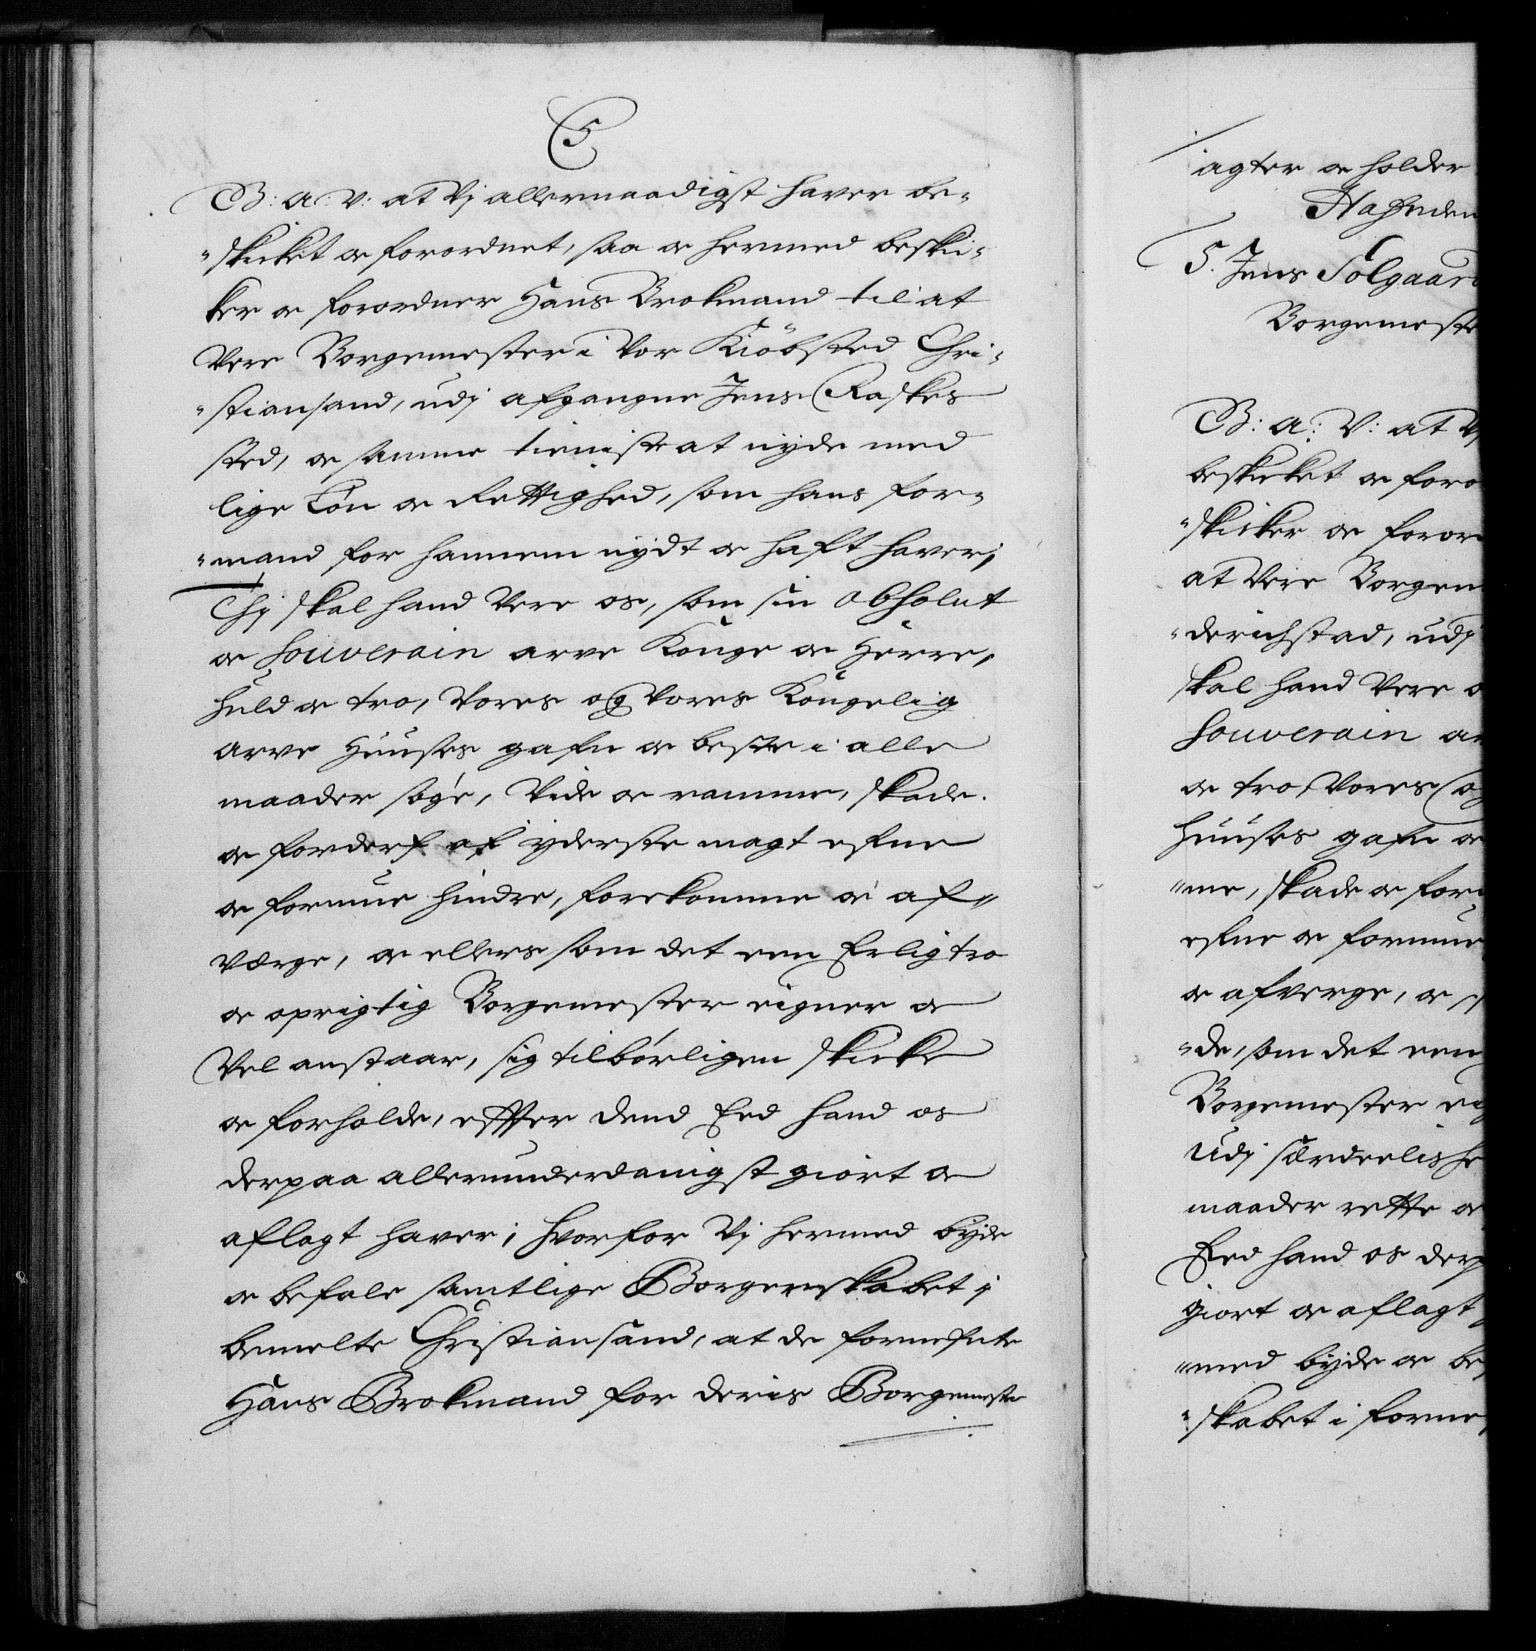 C5
G: A: V: at Vj allernaadigst haver be-
-skicket oc forordnet, saa oc hermed beski-
ker oc forordner Hans Brokmand til at
Vere Borgemester i Vor Kiöbsted Chri-
-stiansand, udj afgangne Jens Raskes
sted, oc samme tienniste at nyde med
lige Løn oc Rettighed, som hans for-
-mand for hannem nydt oc haft haver;
Thj skal hand Vere os, som sin absolut
oc Souverain arve Konge oc Herre,
huld oc tro, Vores og Vores Kongelig
arve Huuses gafn oc beste i alle
maader søge, Vide oc ramme, skade
oc forderf af yderste magt efne
oc formue hindre, forekomme oc af-
værge, oc ellers som det een Erlig tro
oc oprigtig Borgemester eigner oc
Vel anstaar, sig tilbørligen skicke
oc forholde, effter dend Eed hand os
derpaa allerunderdanigst giort oc
aflagt haver; hvorfor Vj hermed byde
oc befale samtlige Borgerskabet i
bemelte Christiansand, at de formefnte
Hans Brokmand for deris Borgemeste
agter oc holder
Hafniæ den
5. Jens Solgaard
Borgemeste
G: A: V: at Vj
beskicket oc foro
-skicker oc foror
at Vere Borgem
-derichstad, udj
skal hand Vere o
Souverain ar
oc tro, Vores og
Huuses gafn oc
-me, skade oc for
efne oc formue
oc afverge, oc
-de, som det een
Borgemester eig
Udj særdeelishe
maader rette oc
Eed hand os derp
giort oc aflagt
-med byde oc be
-skabet i forme